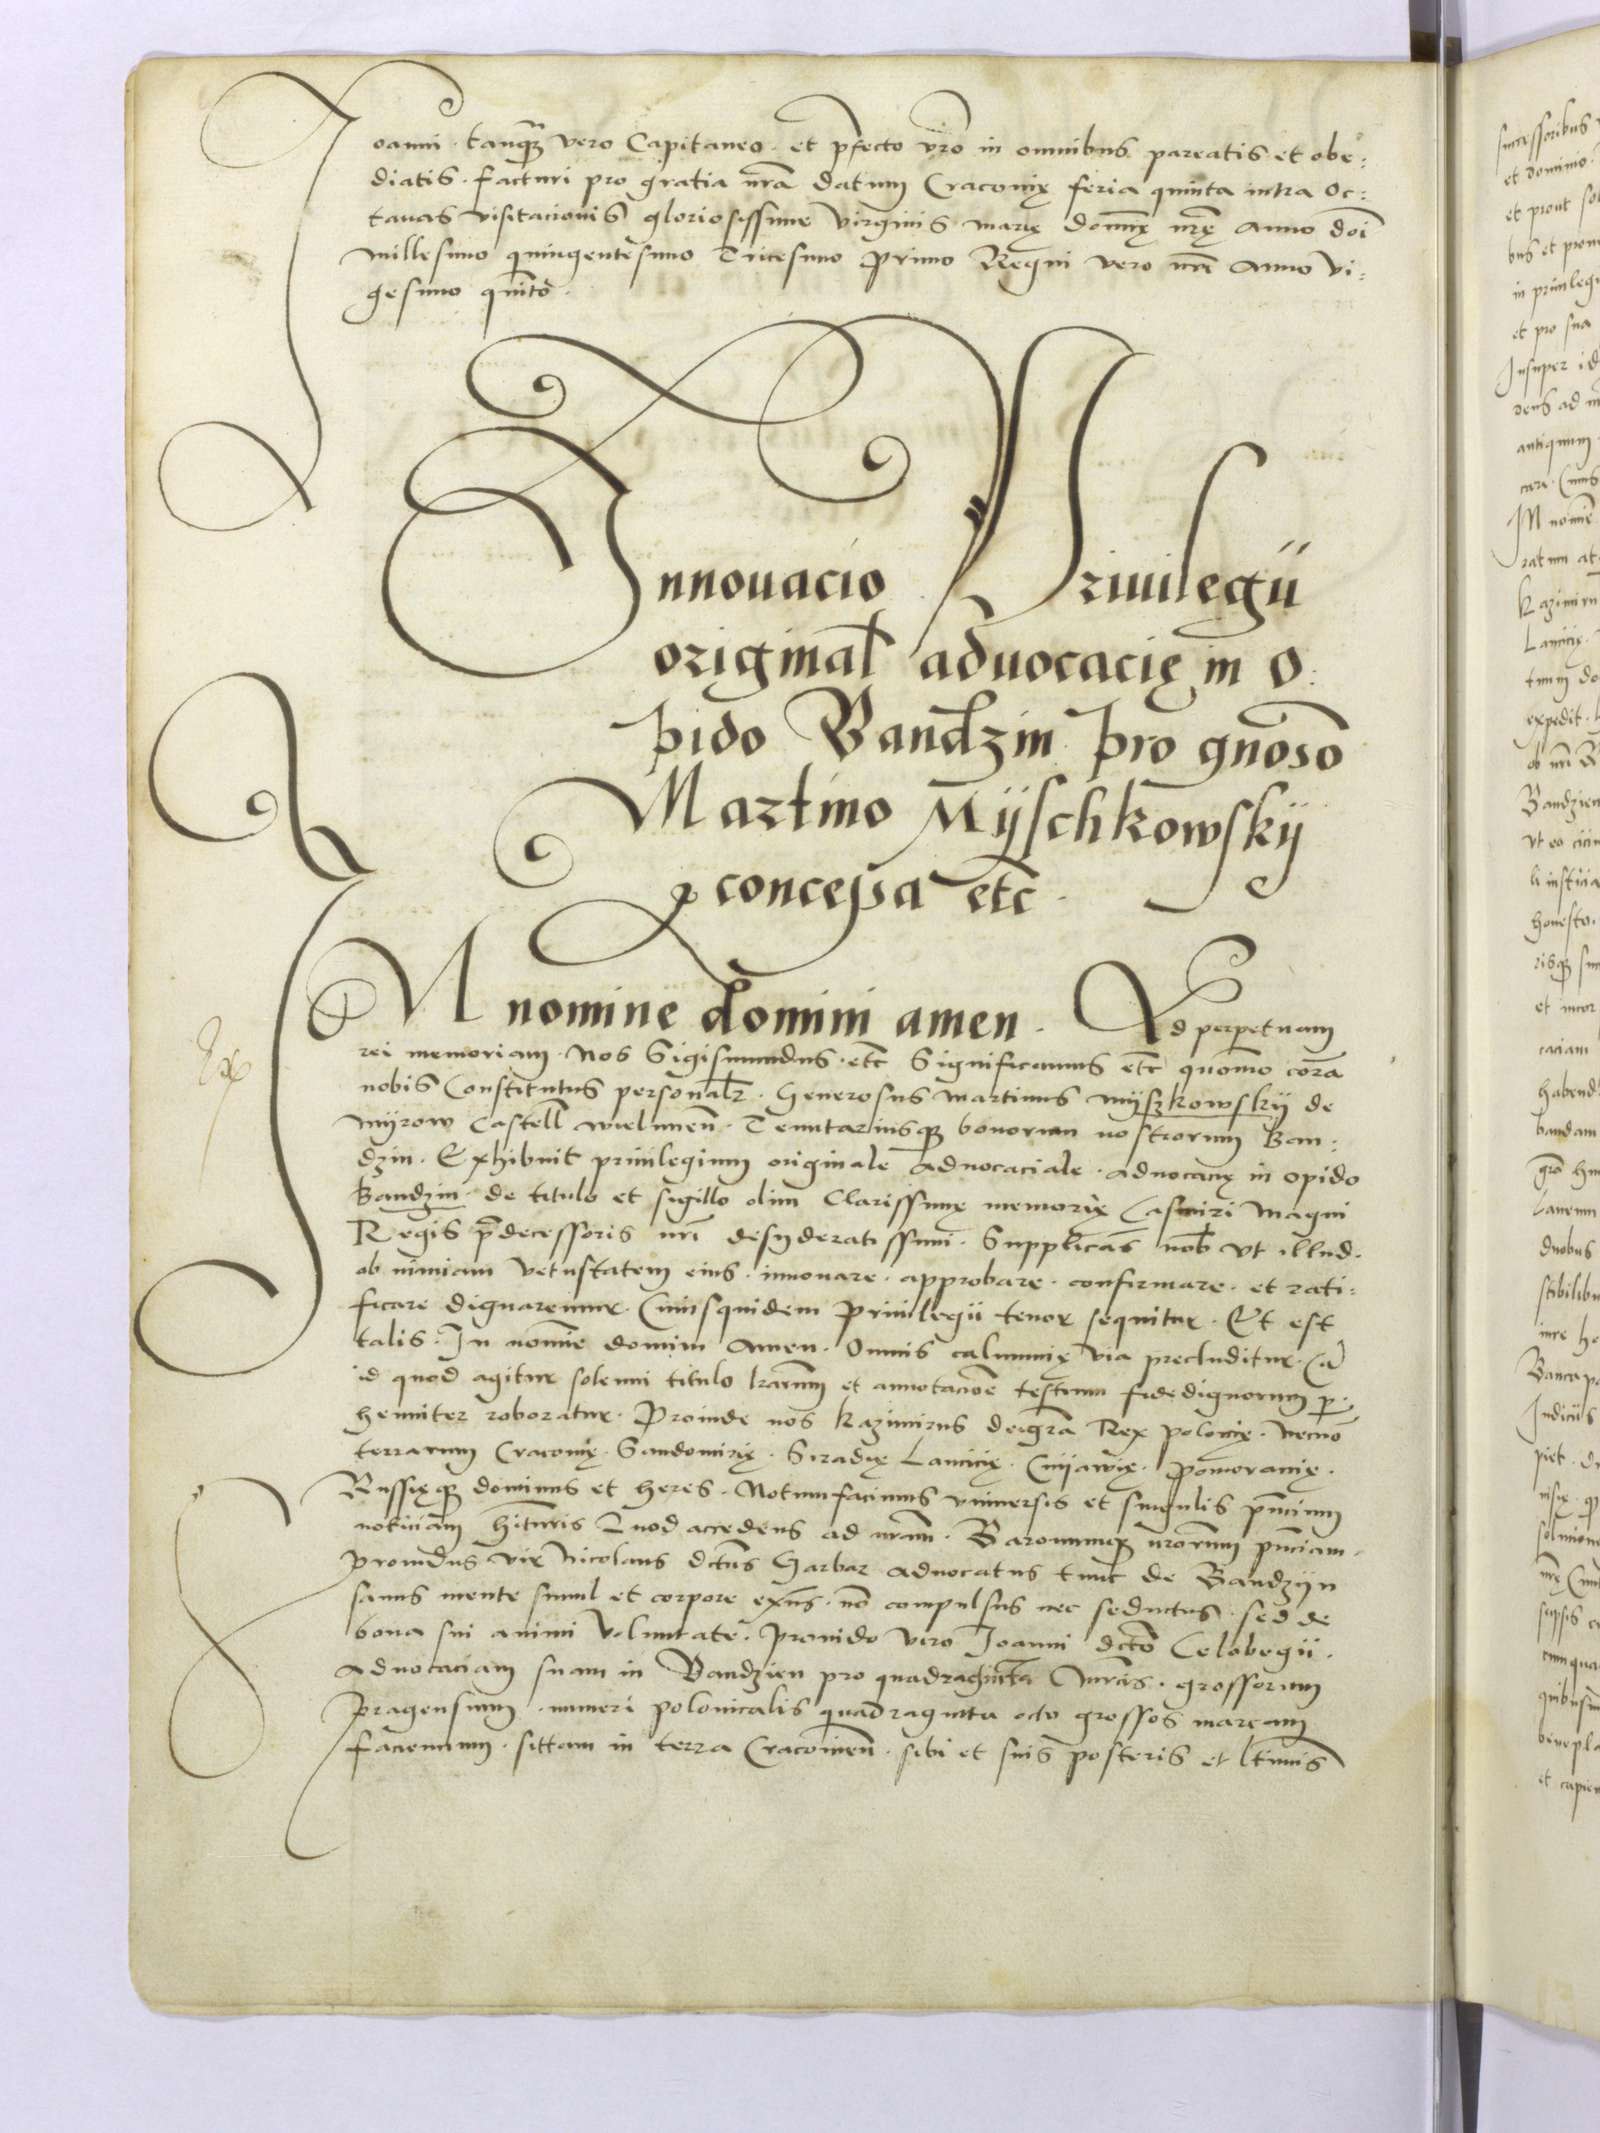 Joanni. tanq̃ vero Capitaneo. et p̃fecto vr̃o in omnibus pareatis et obe:
diatis. facturi pro gratia nr̃a Datum Cracovię feria quinta intra Oc:
tavas visitacionis gloriosissime virginis marię domnę nr̃ę Anno doi̅
millesimo quingentesimo Tricesimo primo Regni vero nr̃i Anno vi:
gesimo quinto.
Innouacio Priuilegii
original̃ aduocacię in O:
pido Bandzin pro gnoso
Martino Myschkowsky
concessa etc̃.
IN nomine domini amen. Ad perpetuam
rei memoriam. Nos Sigismundus. etc̃ Significamus etc̃ quomo corã
nobis Constitutus personal̃r. Generosus Martinus Myszkowsky de
Myrow Castell̃ wielunen̄. Tenutariusq̃ bonorum nostrorum Ban:
dzin. Exhibuit privilegium originale Advocaciale. advocacię in opido
Bandzin. de titulo et sigillo olim Clarissimę memorię Casmiri Magni
Regis p̃decessoris nr̃i desyderatissimi. Supplicãs nob̃ vt illud.
ob nimiam vetustatem eius. innovare. approbare. confirmare. et rati:
ficare dignaremur. Cuiusquidem Privilegii tenor sequitur. Et est
talis. In nomĩe domini Amen. Omnis calumnię via precluditur. Cũ
id quod agitur solenni titulo lrarum et annotacioe testium fidedignorum p:
henniter roboratur. Proinde nos Kazimirus dei gr̃a Rex polonię. necno
terrarum Cracovię. Sandomirię. Siradię Lancicię. Cuyavię. Pomoranię.
Russięq̃ dominus et heres. Notumfacimus vniversis et singulis p̃ncium
noticiam hituris Quod accedens ad nr̃am. Baronumq̃ nr̃orum p̃nciam.
Providus vir Nicolaus dictus Garbar advocatus tunc de Bandzyn
sanus mente simul et corpore exñs. nõ compulsus nec seductus. sed de
bona sui animi voluntate. provido viro Joanni dicto Celobegii.
Advocaciam suam in Bandzien pro quadraginta Mr̃cis. grossorum
Pragensium. numeri polonicalis quadraginta octo grossos marcam
facienium. sittam in terra Cracovien̄. sibi et suis posteris et ltimis
Ex